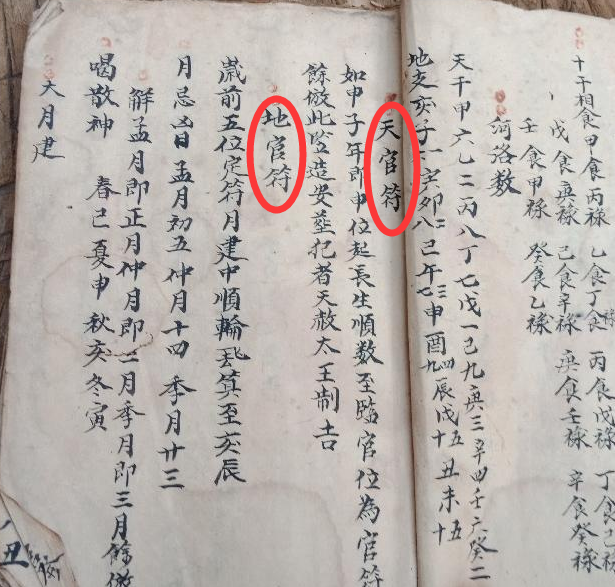 十干相食甲食丙禄
乙食丁食
丙食戊禄
丁食己
戊食庚禄
己食辛禄
庚食壬禄
辛食癸禄
壬食甲禄
癸食乙禄
河洛数
天干甲六乙二丙八丁七戊一己九庚三辛四壬六癸二
地支亥子一六寅卯三八巳午二七申酉四九辰戌五十丑未十五
天官符
如甲子年即申位起長生順数至臨官位為官符
餘倣此竖造安葬犯者天赦太王制吉
地官符
歲前五位定符月建中順輪我算至亥辰
月忌日孟月初五仲月十四季月廿三
解孟月即正月仲月即二月季月即三月餘倣
喝散神 春巳夏申秋亥冬寅
大月建
丑